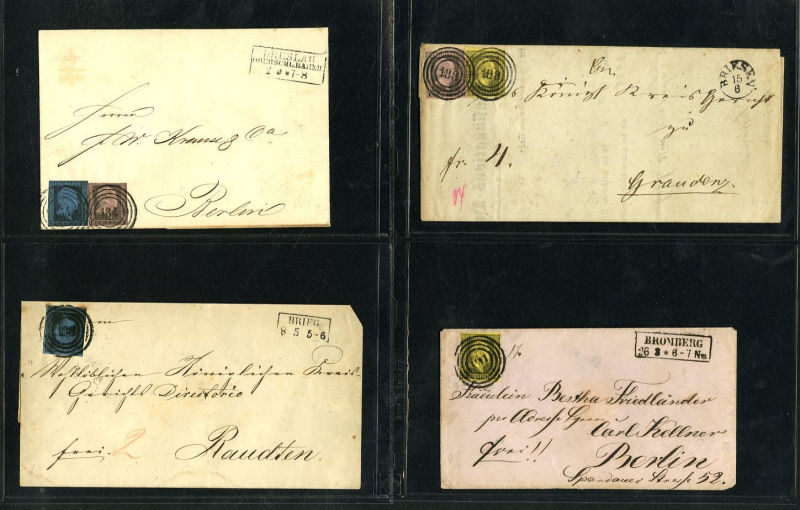 BRESLAU
OBERSCHL.BAHNH.
7-8
Herren
J. W. Krause & Co
184
Berlin
183
BRIESEN
15
6
An
Königl Kreis Gericht
zu
fr. 4.
Graudenz.
BRIEG
8 5 5-6
Wohllöblichen Königlichen Kreis-
Gerichts Directorio
frei.
2
Raudten.
BROMBERG
26 3 * 6-7 Nm
Fräulein Bertha Friedländer
per Adresse Herrn
Carl Kellner
frei!!
Berlin
Spandauer Straße 52.